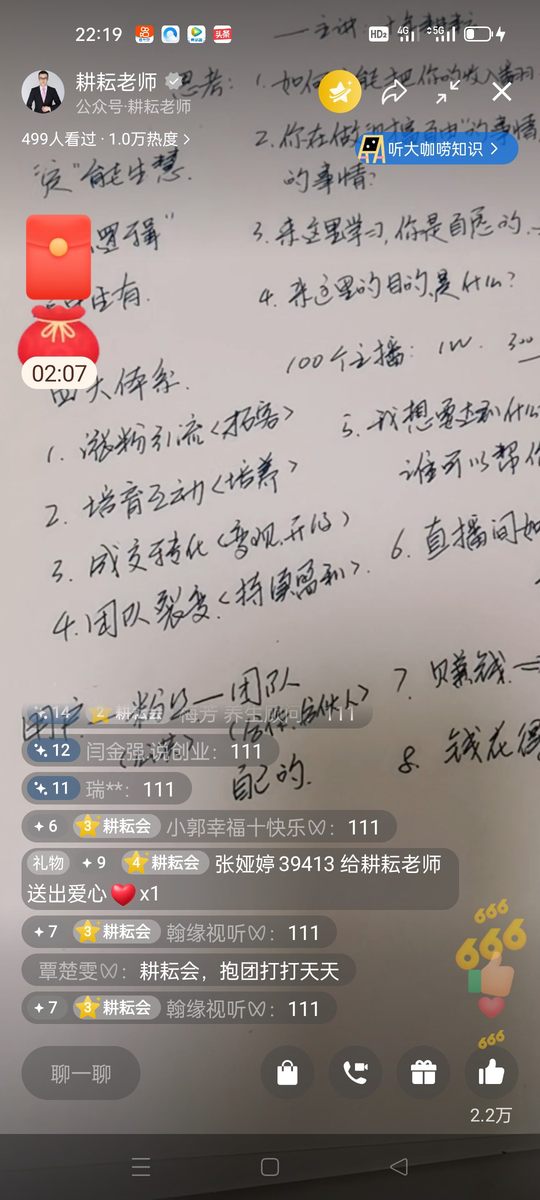 22:19
HD2 4G 5G
头条
一主讲
耕耘老师
公众号·耕耘老师
思考:
1. 如何
能把你的收入翻
499人看过 · 1.0万热度 >
2. 你在做
的事情
听大咖唠知识 >
能生慧.
的事情?
逻辑"
3. 来这里学习,你是自愿的.
生有.
4. 来这里的目的是什么?
02:07
100个主播: 1W. 300
四大体系.
1. 涨粉引流<拓客>
5. 我想要达到什么
谁可以帮你
2. 培育互动<培养>
3. 成交转化<变现.开
6. 直播间如
4. 团队裂变<持续盈利>.
用户一粉丝一团队
7. 赚钱
合伙人>
自己的.
8. 钱在
14 2 耕耘会 海芳 养生顾问: 111
12 闫金强.说创业: 111
11 瑞**: 111
6 3 耕耘会 小郭幸福十快乐: 111
礼物 9 4 耕耘会 张娅婷39413 给耕耘老师
送出爱心 x1
7 3 耕耘会 翰缘视听: 111
覃楚雯: 耕耘会,抱团打打天天
7 3 耕耘会 翰缘视听: 111
666
666
666
聊一聊
2.2万